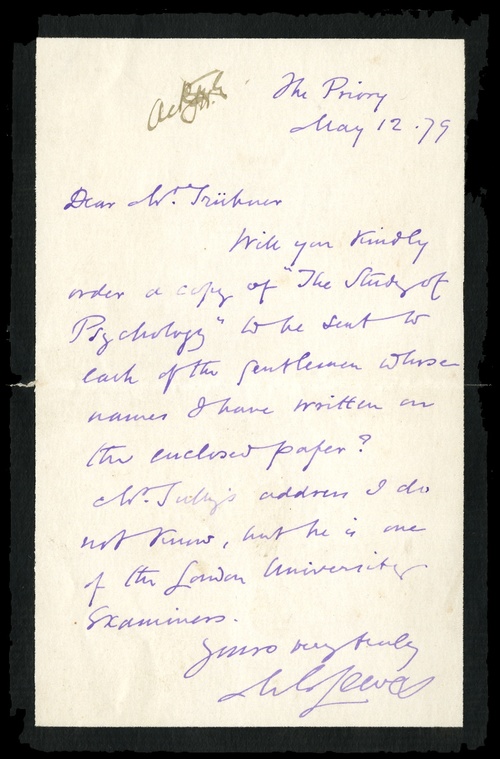 The Priory
May 12. 79
Dear Mr. Trübner
Will you kindly
order a copy of "The Study of
Psychology" to be sent to
each of the gentlemen whose
names I have written on
the enclosed paper?
Mr. Sully's address I do
not know, but he is one
of the London University
Examiners.
Yours very truly
M E Lewes